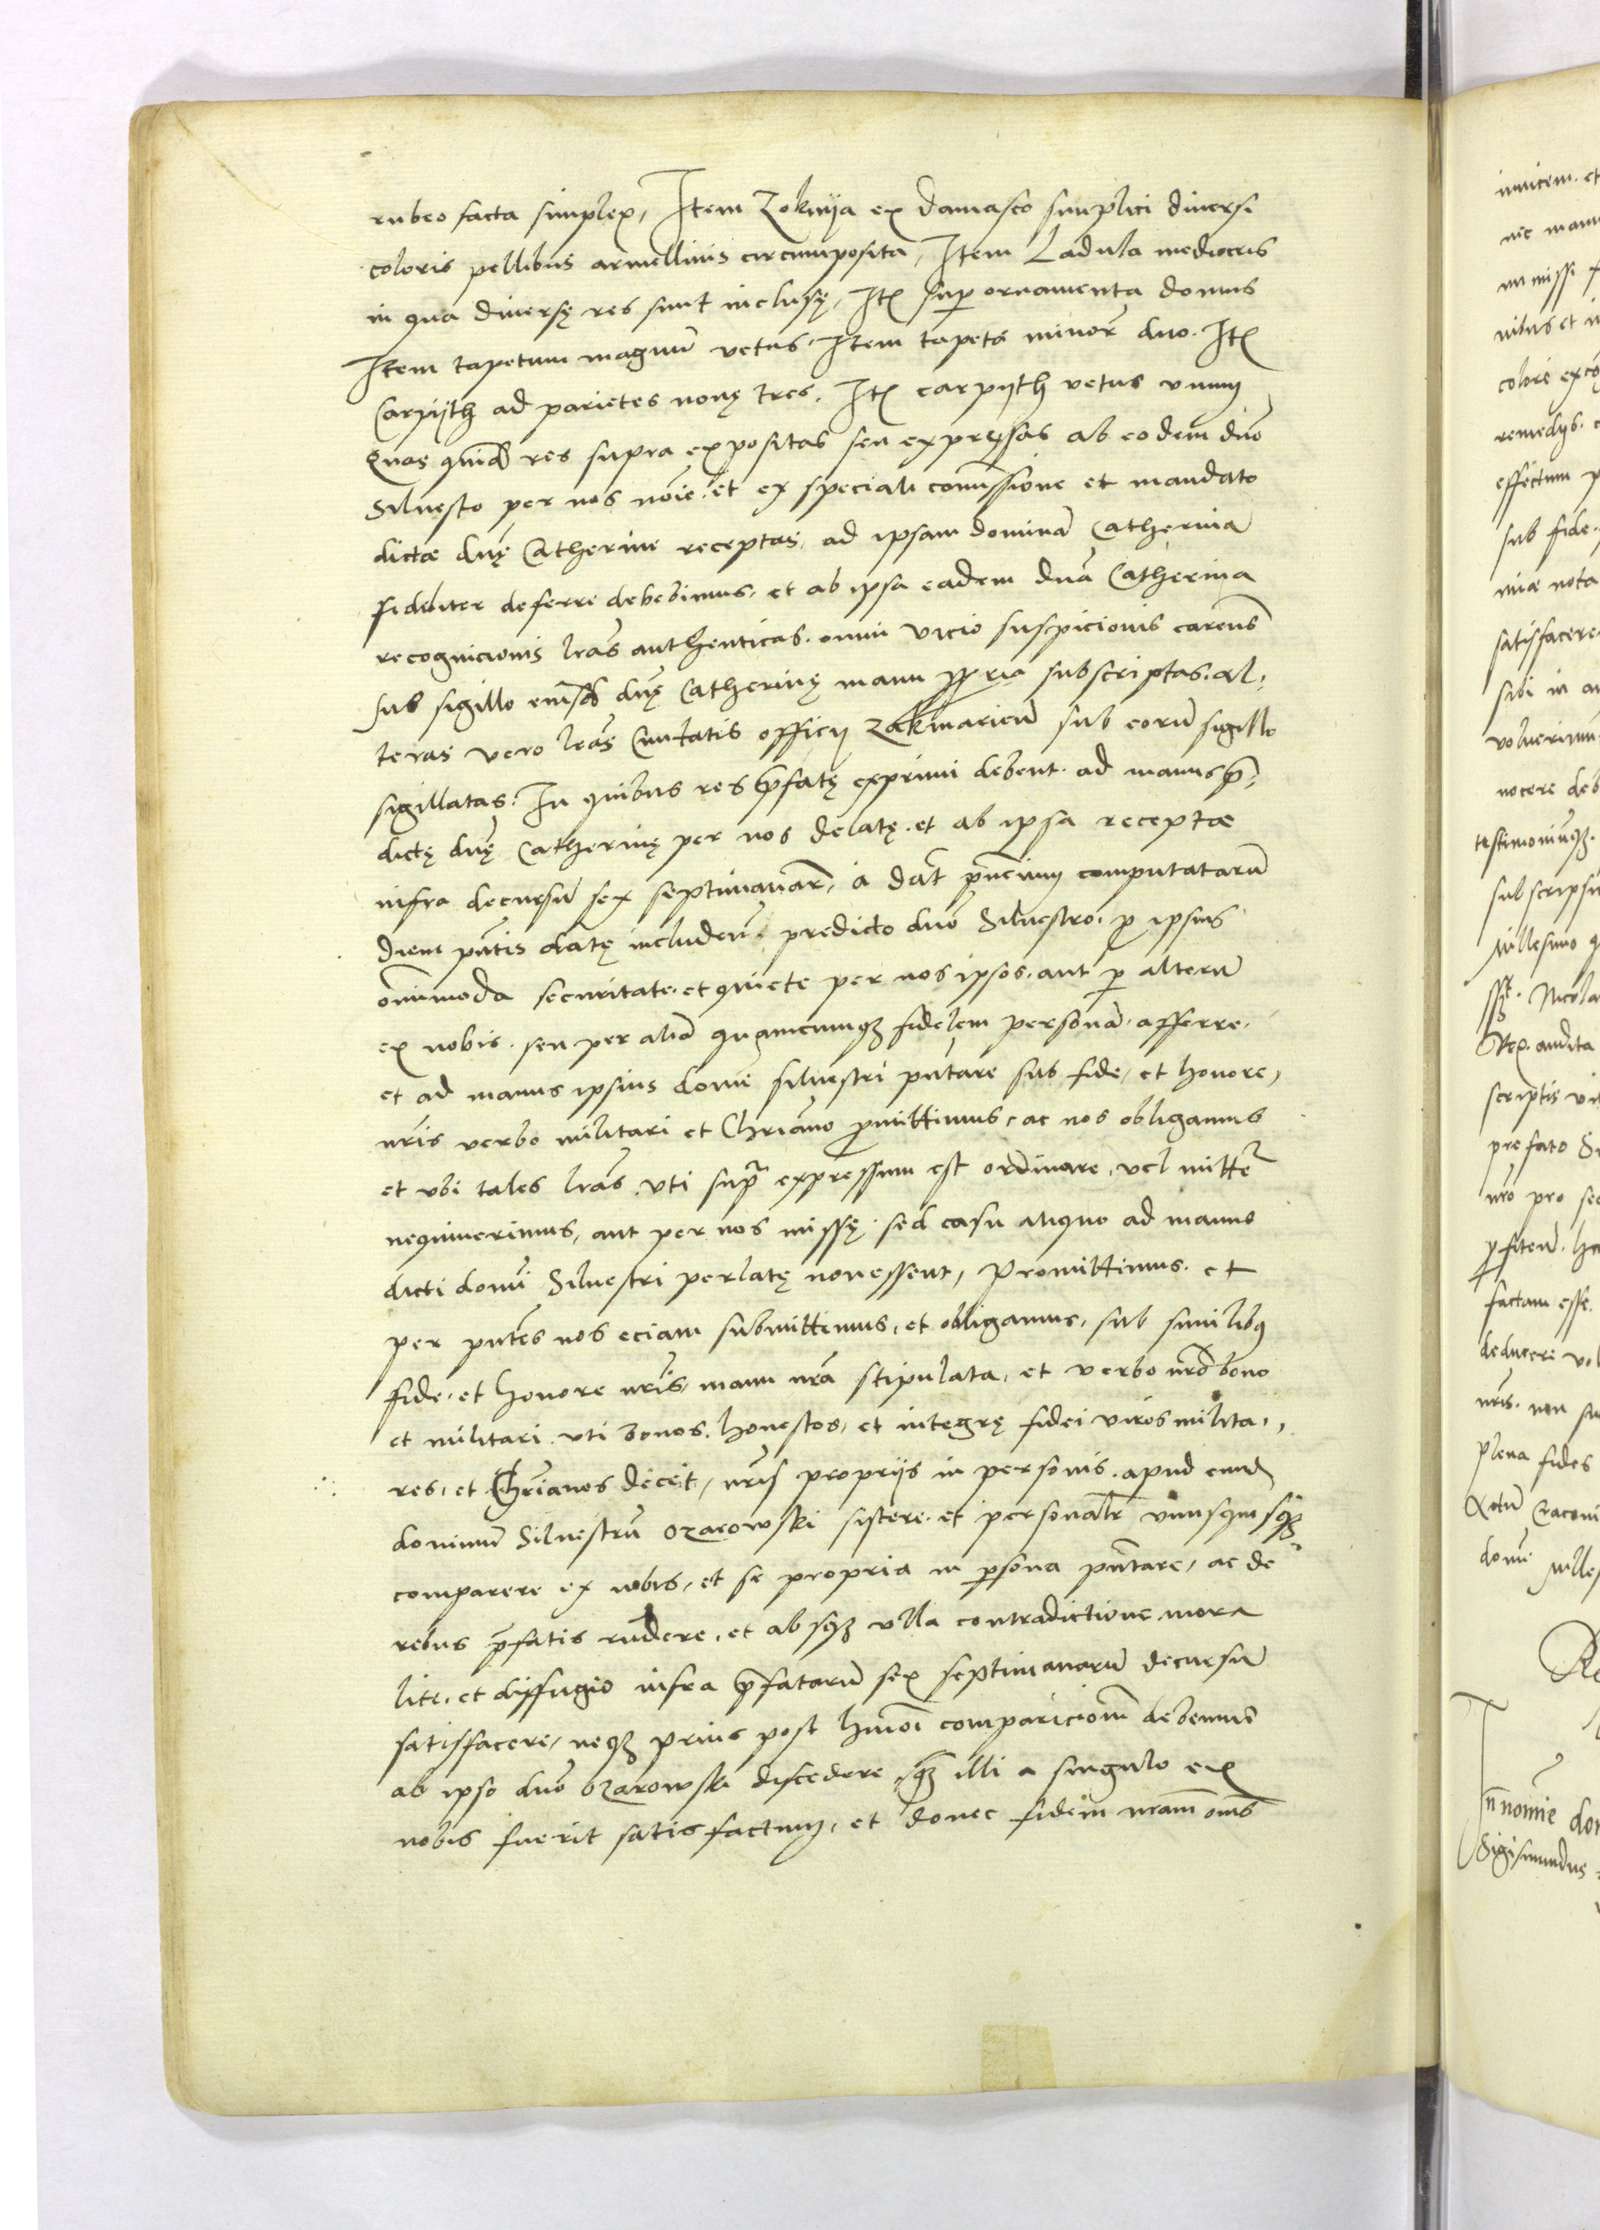 rubeo facta simplex, Item Zoknya ex damasco simplici diuersi
coloris pellibus armellinis circumposita, Item Ladula mediocris
in qua diuersę res sunt inclusę, Itē sup ornamenta domus
Item tapetum magnū vetus, Item tapeta minor duo. Itē
Carpijth ad parietes nouę tres. Itē carpijth vetus vnum
Quas quid res supra expositas seu expressas ab eodem dno
Siluestro per nos noie. et ex speciali comissione et mandato
dictae dnę Catherine receptas, ad ipsam dominā Catherinā
fideliter deferre debebimus. et ab ipsa eadem dnā Catherina
recognicionis lras authenticas. omni vicio suspicionis carens
sub sigillo eiusd dnę Catherinę manu ppria subscriptas. al,
teras vero lras Ciuitatis officij Zakmarieñ sub eorū sigillo
sigillatas. In quibus res pfatę exprimi debent. ad manus p,
dictę dnę Catherinę per nos delatę. et ab ipsa receptae
infra decursū sex septimanar, a dat pncium computatarū
diem pntis datę includeñ. predicto dno Siluestro. p ipsius
omimoda securitate. et quiete per nos ipsos. aut p alterū
ex nobis. seu per aliā quamcumq fidelem personā. afferre.
et ad manus ipsius domi siluestri pntare sub fide, et honore,
nris verbo militari et Chriano pmittimus, ac nos obligamus
et vbi tales lras vti supra expressum est ordinare, vel mitte
nequiuerimus, aut per nos missę. sed casu aliquo ad manus
dicti domi Siluestri perlatę non essent, Promittimus. et
per pntes nos eciam submittimus, et obligamus, sub similibq
fide, et honore nris, manu nra stipulata, et verbo nro bono
et militari. vti bonos. honestos, et integrę fidei viros milita,
res, et Chrianos decet, nris proprijs in personis. apud eund
dominū Siluestrū Ozarowski sistere. et personalr vnusquisq
comparere ex nobis, et se propria in psona pntare, ac de
rebus pfatis reddere. et absq vlla contradictione mora
lite. et diffugio infra pfatarū sex septimanarū decursū
satisfacere, neq prius post hmoi comparicionem debemus
ab ipso dno Ozarowski discedere, q illi a singulo ex
nobis fuerit satisfactum, et donec fidem nram oms